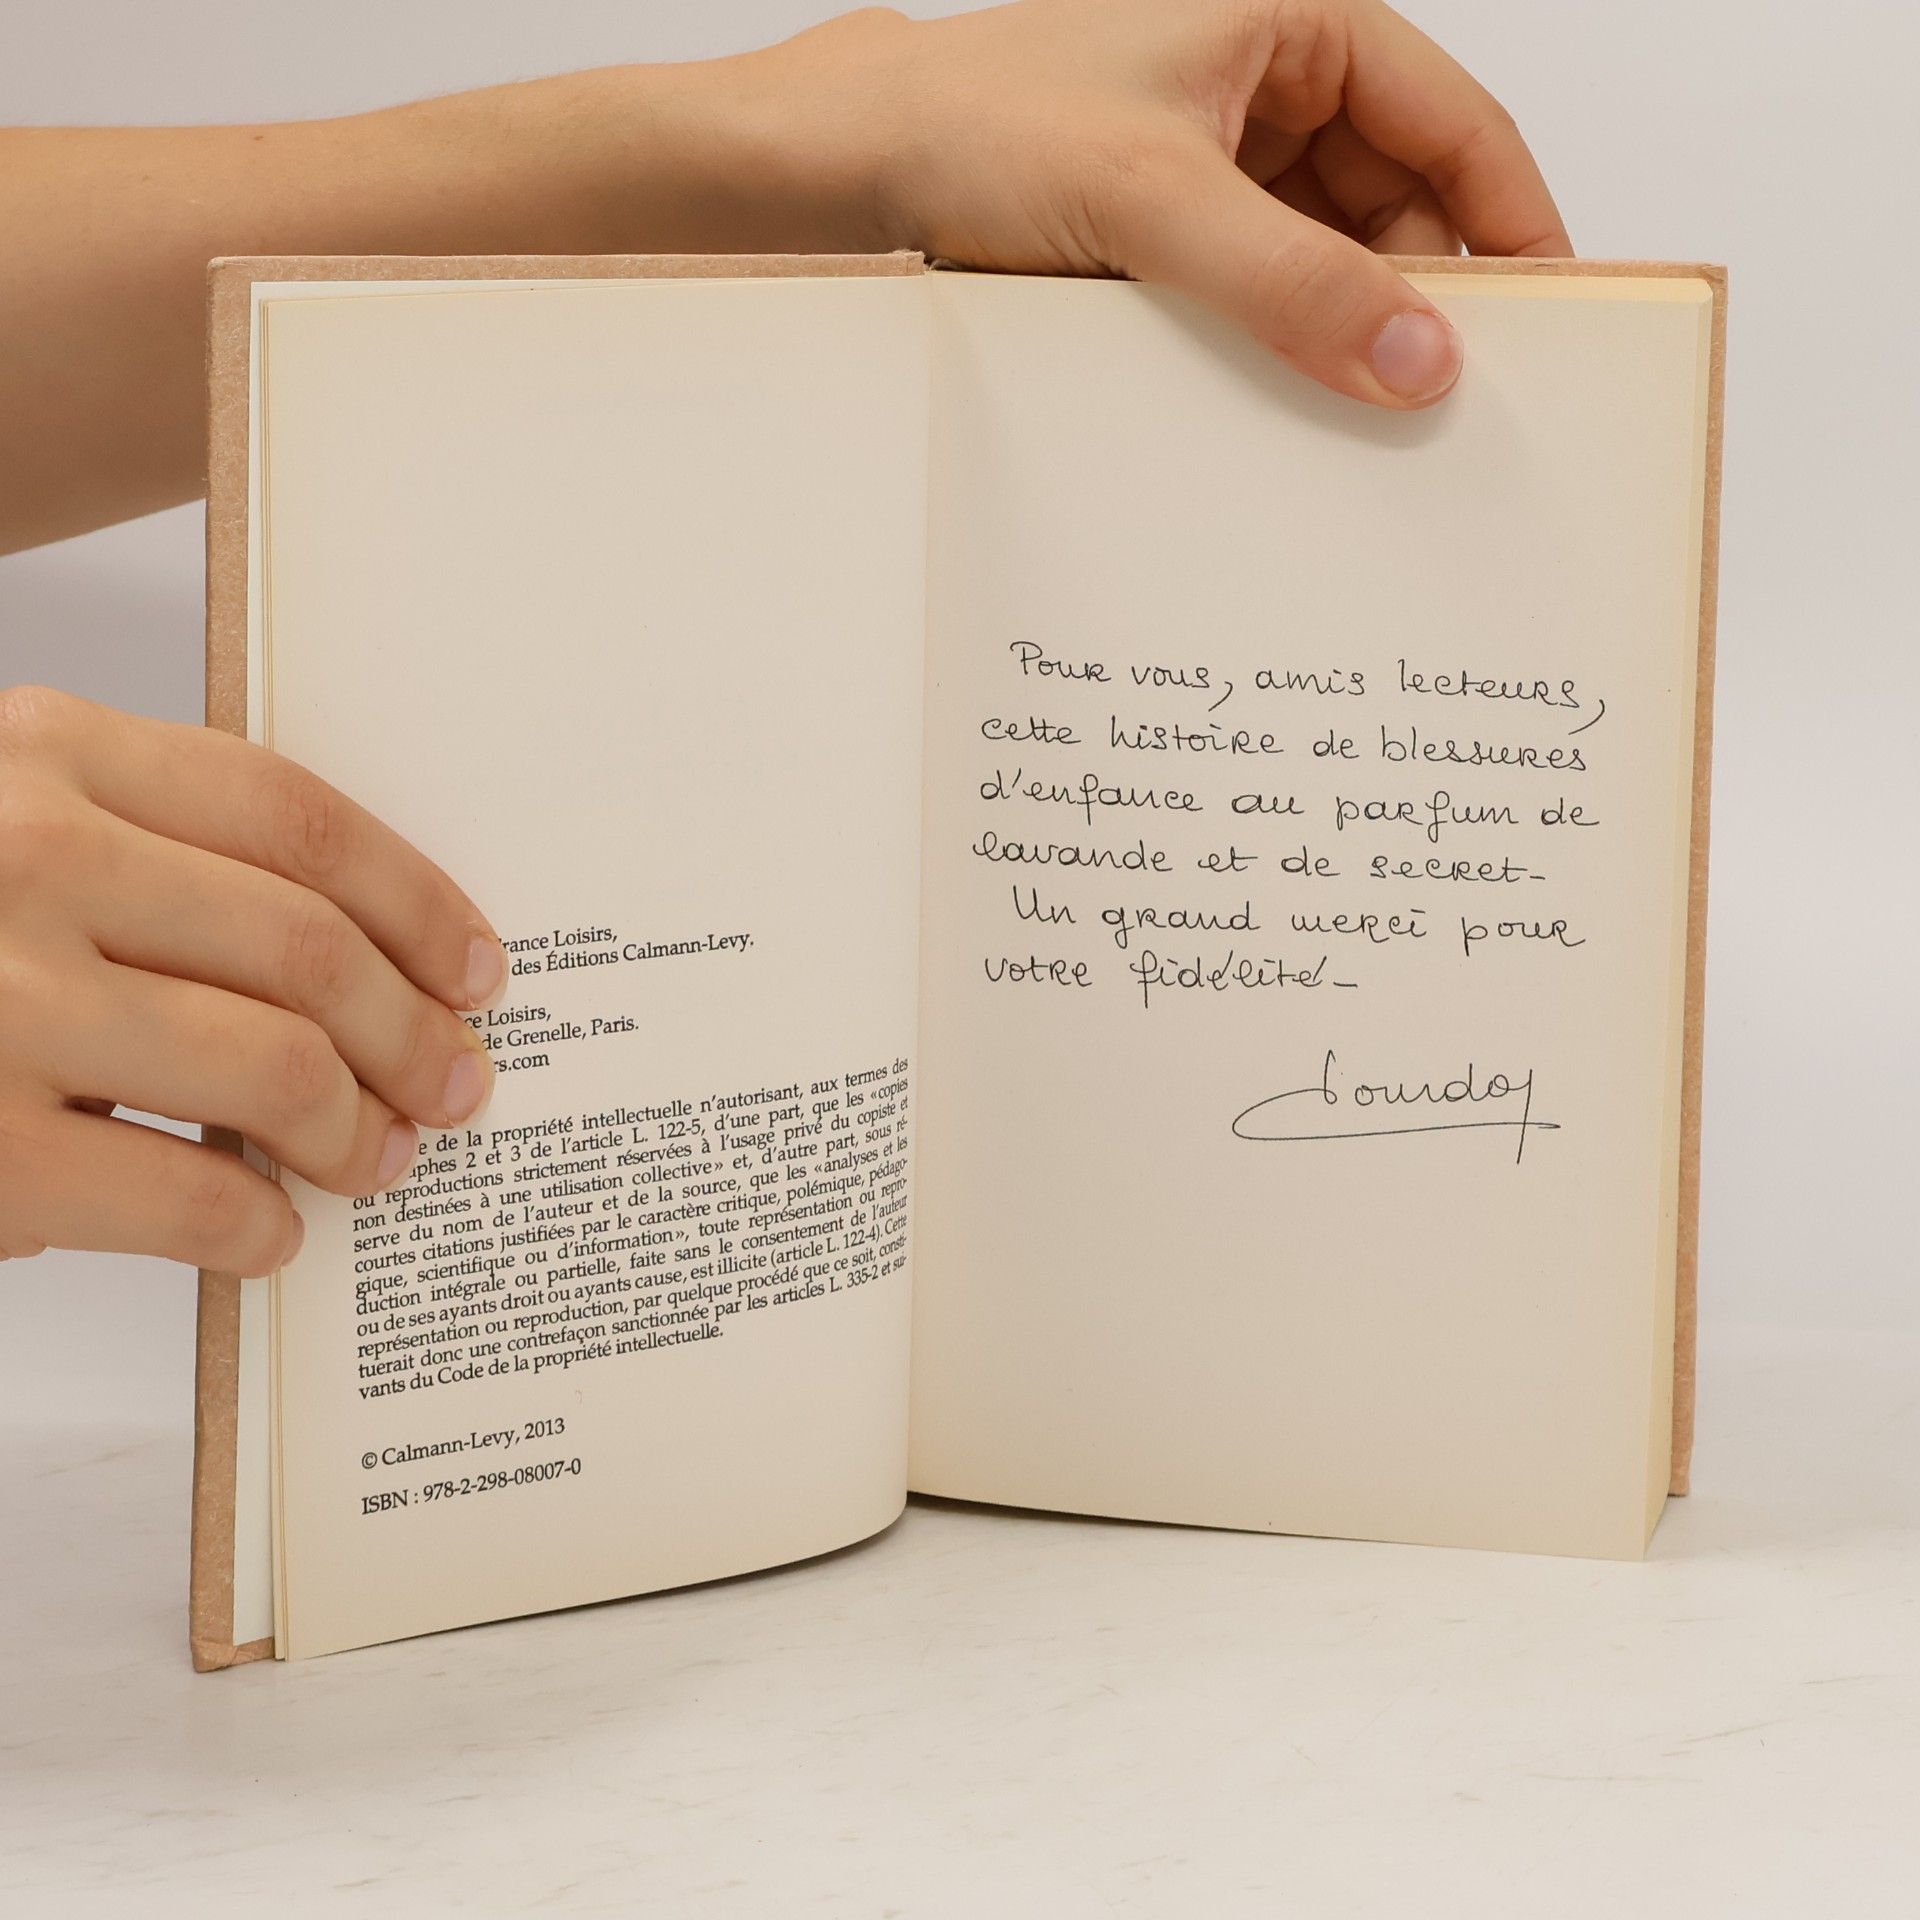 rance Loisirs,
des Éditions Calmann-Levy.
ce Loisirs,
de Grenelle, Paris.
rs.com
e de la propriété intellectuelle n'autorisant, aux termes des
aphes 2 et 3 de l'article L. 122-5, d'une part, que les «copies
ou reproductions strictement réservées à l'usage privé du copiste et
non destinées à une utilisation collective» et, d'autre part, sous ré-
serve du nom de l'auteur et de la source, que les «analyses et les
courtes citations justifiées par le caractère critique, polémique, pédago-
gique, scientifique ou d'information», toute représentation ou repro-
duction intégrale ou partielle, faite sans le consentement de l'auteur
ou de ses ayants droit ou ayants cause, est illicite (article L. 122-4). Cette
représentation ou reproduction, par quelque procédé que ce soit, consti-
tuerait donc une contrefaçon sanctionnée par les articles L. 335-2 et sui-
vants du Code de la propriété intellectuelle.
© Calmann-Levy, 2013
ISBN : 978-2-298-08007-0
Pour vous, amis lecteurs,
cette histoire de blessures
d'enfance au parfum de
lavande et de secret-
Un grand merci pour
votre fidélité-